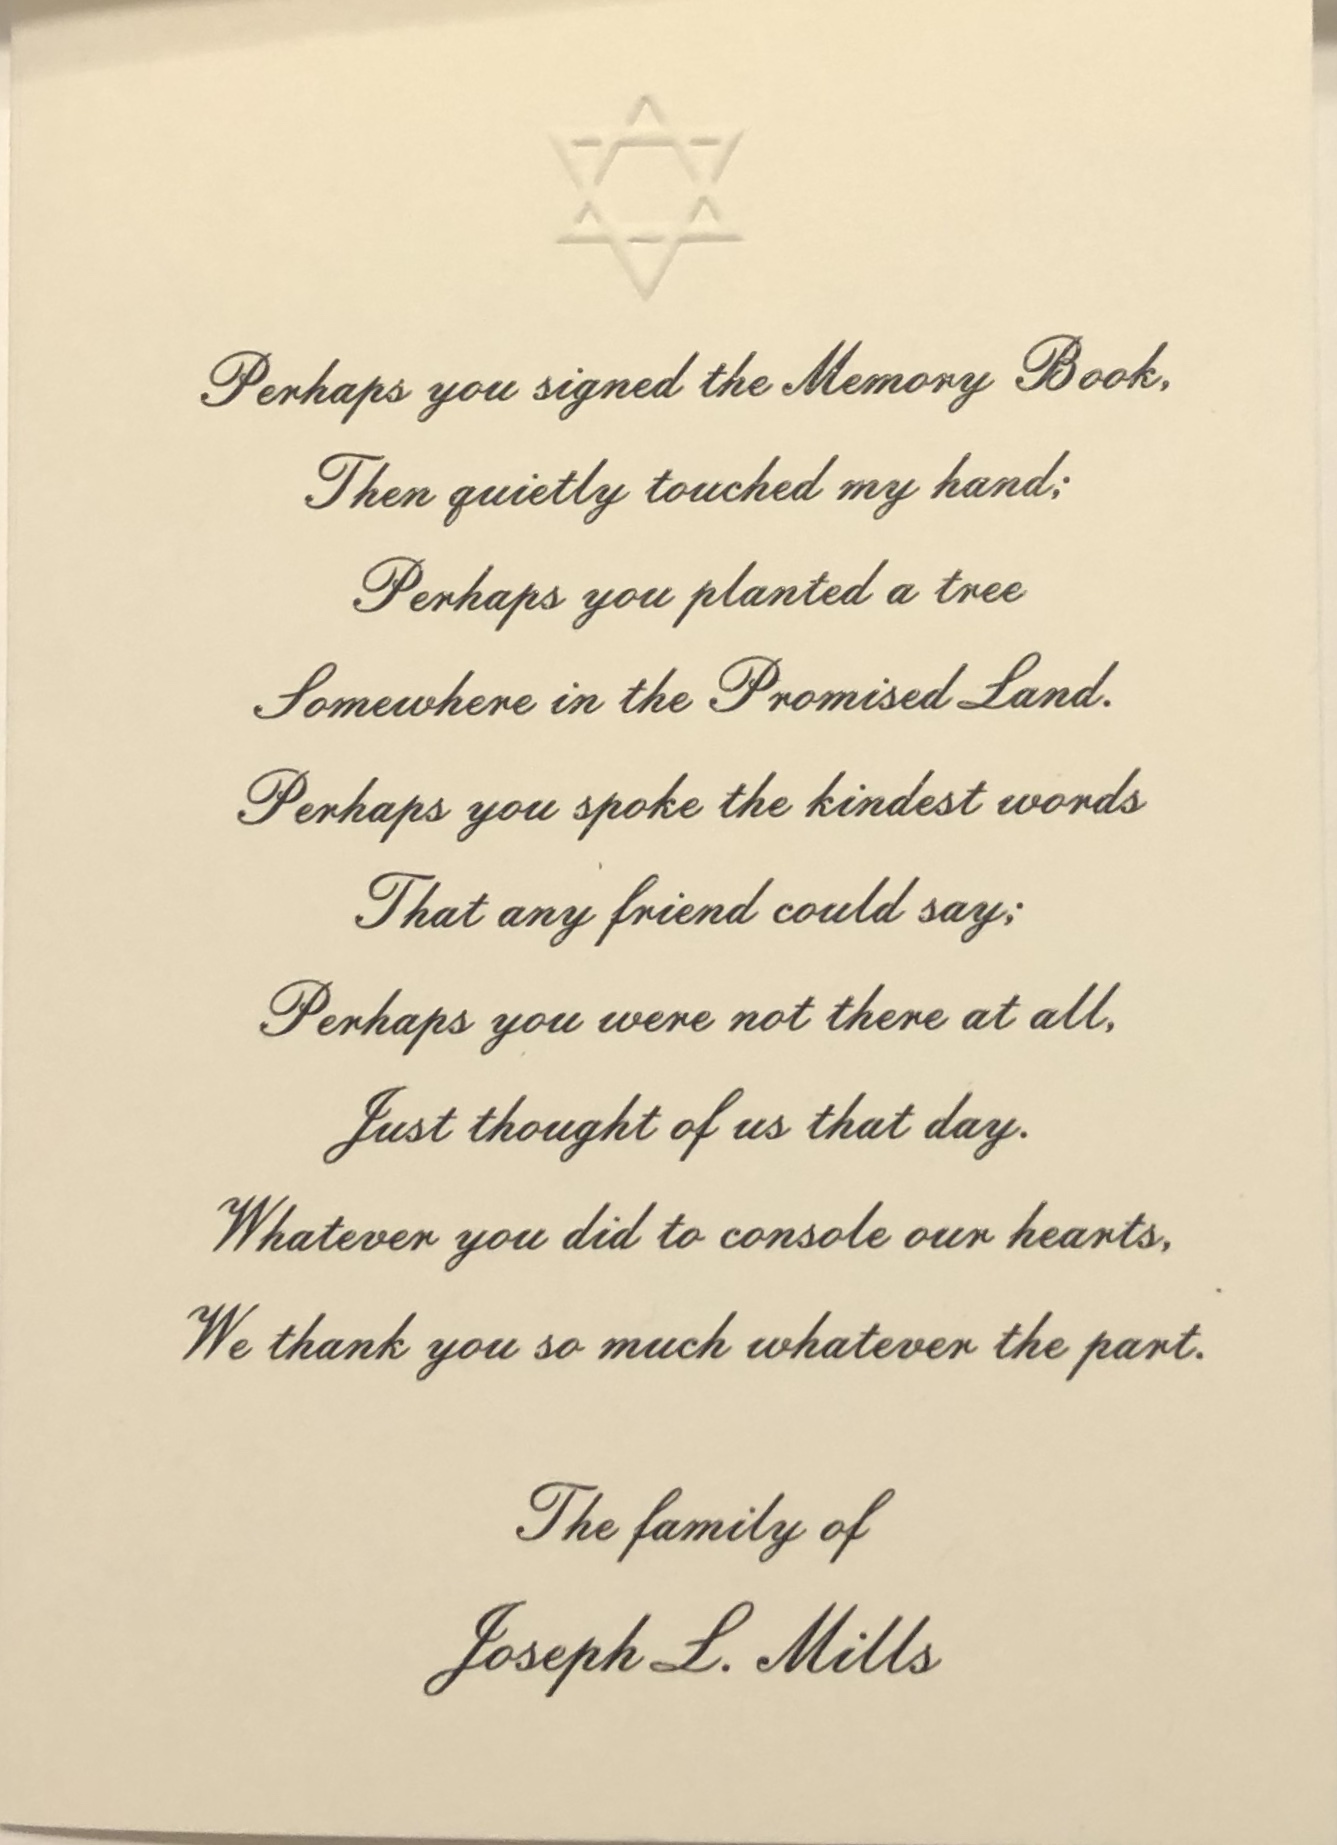 Perhaps you signed the Memory Book,
Then quietly touched my hand;
Perhaps you planted a tree
Somewhere in the Promised Land.
Perhaps you spoke the kindest words
That any friend could say;
Perhaps you were not there at all,
Just thought of us that day.
Whatever you did to console our hearts,
We thank you so much whatever the part.
The family of
Joseph L. Mills